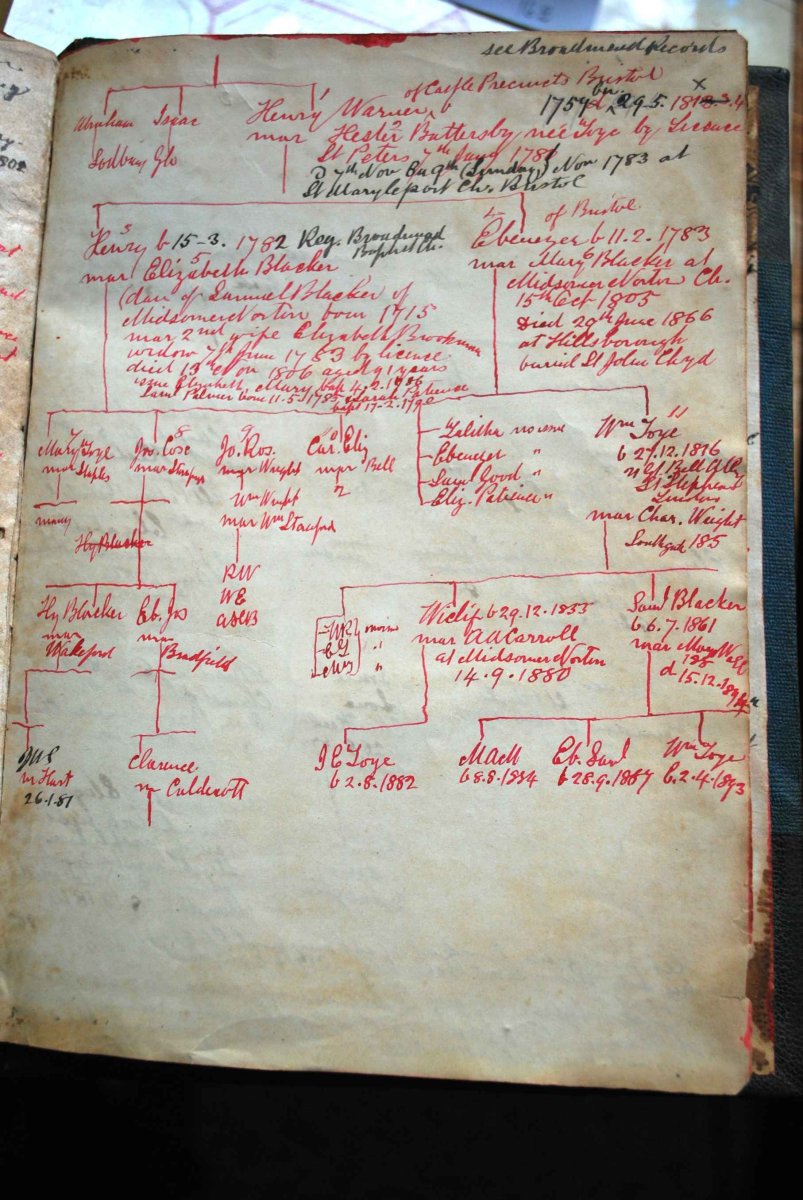 see Broadmead Records
of Castle Precincts Bristol
Abraham Isaac Henry Warner b 1754 bu 29.5. 1813.3.4
x
1
mar Hester Battersby nee Toye by Licence
2
Sodbury Glo
St Peters 7th Jany 1781
D 7th Nov Bu 9th (Sunday) Nov 1783 at
St Maryleport Ch. Bristol
3
Henry b 15-3. 1782 Reg. Broadmead
Baptist Ch.
5
mar Elizabeth Blacker
(dau of Samuel Blacker of
Midsomer Norton born 1715
mar 2nd wife Elizabeth Brookman
widow 7th June 1783 by licence
died 13th Nov 1806 aged 91 years
issue Elizabeth, Mary bap 4.2.1786
Saml Palmer born 11.5.1785 & Sarah Patience
bapt 17-2-1790
4
of Bristol
Ebenezer b 11.2.1783
mar Mary Blacker at
Midsomer Norton Ch.
15th Oct 1805
Died 29th June 1866
at Hillsborough
buried St John Chyd
Mary Toye
mar Staples
many
8
Jos. Cose
mar
Hy Blacker
9
Jo. Ros.
mar Wright
Wm Wright
mar Wm
RW
WE
Car. Eliz
mar Bell
Talitha no issue
Ebenezer "
Saml Good "
Eliz. Patience "
11
Wm Toye
b 27.12.1816
21 Bell Alley
St Stephens
London
mar Char. Weight
Southgate 185
Hy Blacker
mar
Wakeford
Eb. Jos
mar
Bradfield
no issue
"
"
Wiclif b 29.12.1855
mar AA Carroll
at Midsomer Norton
14.9.1880
Saml Blacker
b 6.7.1861
mar Mary Wall
185
d 15.12.189
m Hart
26.1.51
Clarence
m Caldecott
J E Toye
b 2.8.1882
MAM
b 8.8.1884
Eb. Saml
b 28.9.1887
Wm Toye
b. 2.4.1893